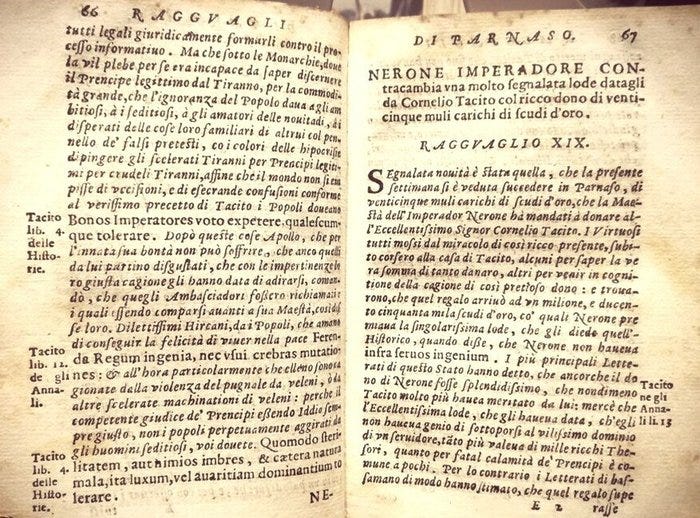 66 RAGGVAGLI
tutti legali giuridicamente formarli contro il pro-
cesso informatiuo. Ma che sotto le Monarchie, doue
la vil plebe per se era incapace da saper discernere
il Prencipe legittimo dal Tiranno, per la commodi-
tà grande, che l'ignoranza del Popolo daua a gli am
bitiosi, à i seditiosi, à gli amatori delle nouitadi, ài
disperati delle cose loro familiari di altrui col pen-
nello de' falsi pretesti, co i colori delle hipocrisie
dipingere gli scelerati Tiranni per Prencipi legiti-
mi per crudeli Tiranni, affine che il mondo non si em
pisse di vccisioni, e di esecrande confusioni conforme
al verissimo precetto di Tacito i Popoli doueano
Bonos Imperatores voto expetere, qualescum-
que tolerare. Dopò queste cose Apollo, che per
l'innata sua bontà non può soffrire, che anco quelli
da lui partino disgustati, che con le impertinenze lo
ro giusta cagione gli hanno data di adirarsi, coman-
dò, che quegli Ambasciadori fossero richiamati e
i quali essendo comparsi auanti a sua Maestà, così dis
se loro. Dilettissimi Hircani, da i Popoli, che amano
di conseguir la felicità di viuer nella pace Feren-
da Regum ingenia, nec vsui crebras mutatio-
nes: & all'hora particolarmente che elleno sono ca
gionate dalla violenza del pugnale da veleni, ò da
altre scelerate machinationi di veleni: perche il
competente giudice de' Prencipi essendo Iddio sem-
pre giusto, non i popoli perpetuamente aggirati da
gli huomini seditiosi, voi douete. Quomodo steri-
litatem, aut nimios imbres, & cætera natura
mala, ita luxum, vel auaritiam dominantium to
lerare.
NE-
Tacito
lib. 4.
delle
Histo-
rie.
Tacito
lib. 12.
de gli
Anna-
li.
Tacito
lib. 4.
delle
Histo-
rie.
DI PARNASO. 67
NERONE IMPERADORE CON-
tracambia vna molto segnalata lode datagli
da Cornelio Tacito col ricco dono di venti-
cinque muli carichi di scudi d'oro.
RAGGVAGLIO XIX.
SEgnalata nouità è stata quella, che la presente
settimana si è veduta succedere in Parnaso, di
venticinque muli carichi di scudi d'oro, che la Mae-
stà dell'Imperador Nerone hà mandati à donare al-
l'Eccellentissimo Signor Cornelio Tacito. I Virtuosi
tutti mossi dal miracolo di così ricco presente, subi-
to corsero alla casa di Tacito, alcuni per saper la ve
ra somma di tanto danaro, altri per venir in cogni-
tione della cagione di così pretioso dono: e troua-
rono, che quel regalo arriuò ad vn milione, e ducen-
to cinquanta mila scudi d'oro, co' quali Nerone pre
miaua la singolarissima lode, che gli diede quell'-
Historico, quando disse, che Nerone non haueua
infra seruos ingenium. I più principali Lette-
rati di questo Stato hanno detto, che ancorche il do
no di Nerone fosse splendidissimo, che nondimeno
Tacito molto più haueua meritato da lui: mercè che
l'Eccellentissima lode, che gli haueua data, ch'egli
non haueua genio di sottoporsi al vilissimo dominio
di vn seruidore, tāto più valeua di mille ricchi The-
sori, quanto per fatal calamità de' Prencipi è co-
mune a pochi. Per lo contrario i Letterati di bas-
sa mano di modo hanno stimato, che quel regalo supe
E 2 rasse
Tacito
ne gli
Anna-
li li. 13